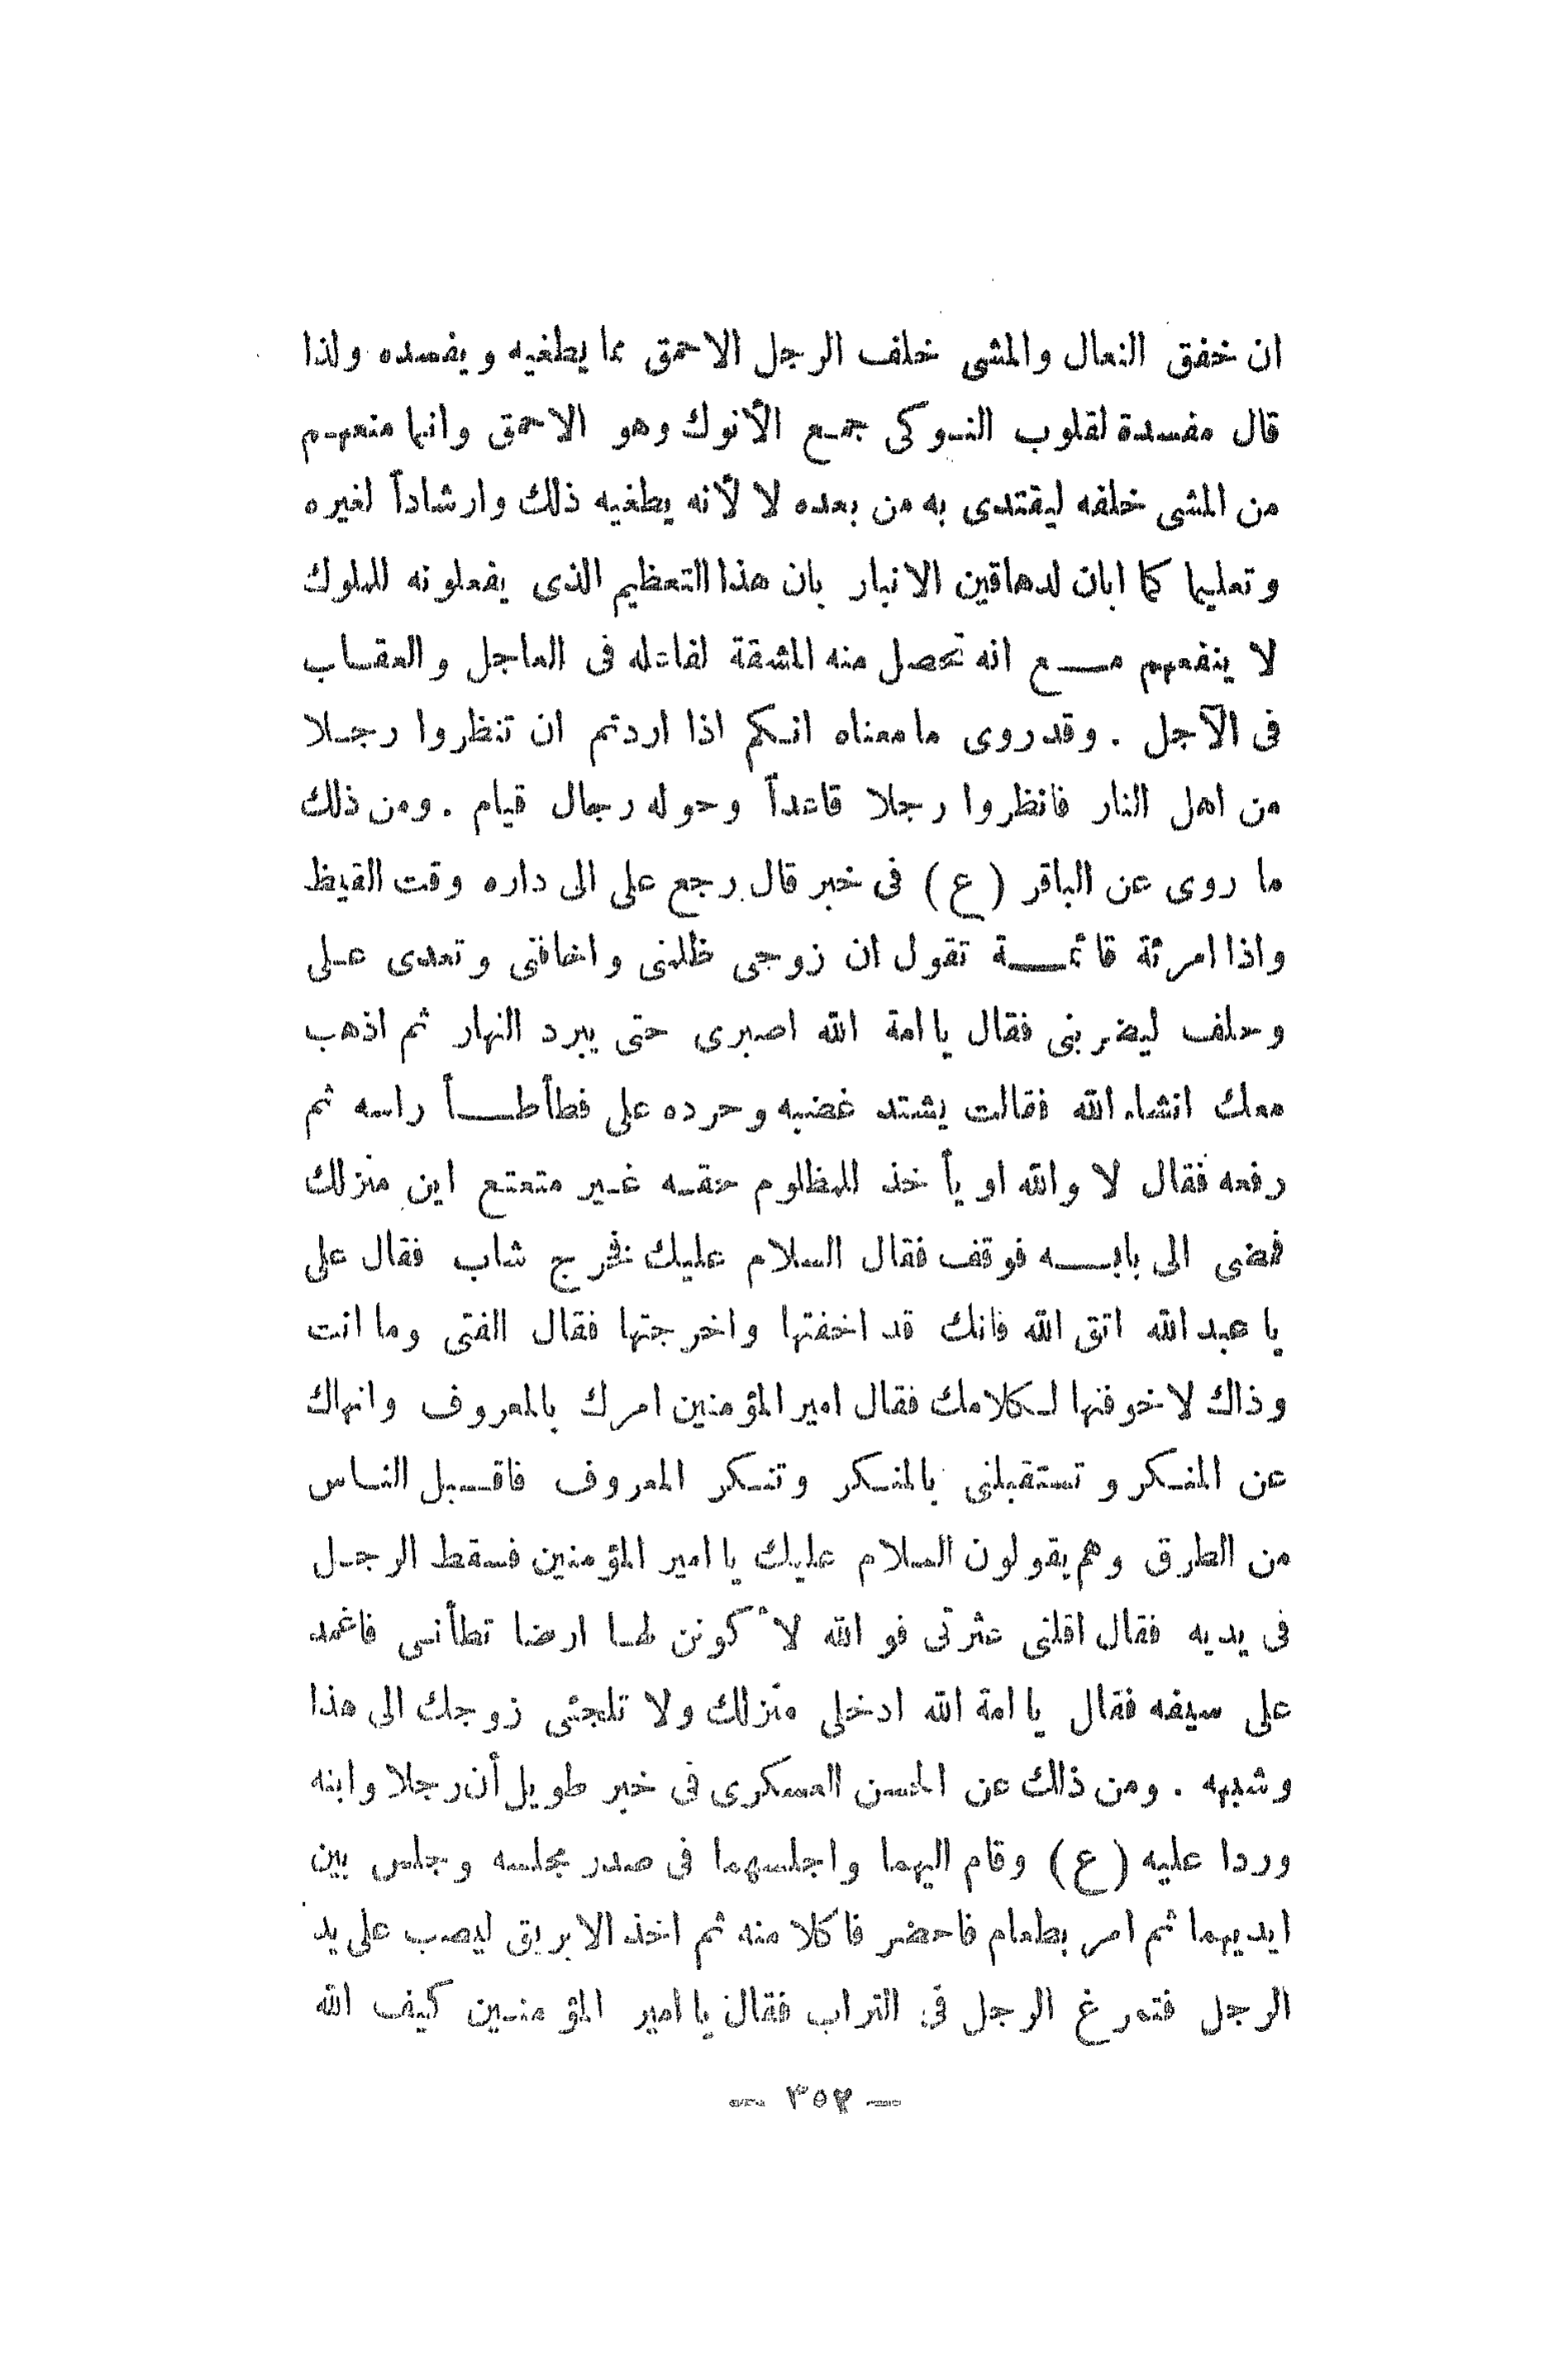 ان خفق النعال والمشى خلف الرجل الاحمق مما يطغيه ويفسده ولذا
قال مفسدة لقلوب النوكى جمع الأنوك وهو الاحمق وانما منعهم
من المشى خلفه ليقتدى به من بعده لا لأنه يطغيه ذلك وارشاداً لغيره
وتعليما كما ابان لدهاقين الانبار بان هذا التعظيم الذى يفعلونه للملوك
لا ينفعهم مع انه تحصل منه المشقة لفاعله فى العاجل والعقاب
فى الآجل . وقد روى ما معناه انكم اذا اردتم ان تنظروا رجلا
من اهل النار فانظروا رجلا قاعداً وحوله رجال قيام . ومن ذلك
ما روى عن الباقر (ع) فى خبر قال رجع على الى داره وقت القيظ
واذا امرئة قائمة تقول ان زوجى ظلمنى واخافنى وتعدى على
وحلف ليضربنى فقال يا امة الله اصبرى حتى يبرد النهار ثم اذهب
معك انشاء الله فقالت يشتد غضبه وحرده على فطأطأ راسه ثم
رفعه فقال لا والله او يأخذ للمظلوم حقه غير متعتع اين منزلك
فمضى الى بابه فوقف فقال السلام عليك فخرج شاب فقال على
يا عبد الله اتق الله فانك قد اخفتها واخرجتها فقال الفتى وما انت
وذاك لاخوفنها لكلامك فقال امير المؤمنين امرك بالمعروف وانهاك
عن المنكر وتستقبلنى بالمنكر وتنكر المعروف فاقبل الناس
من الطرق وهم يقولون السلام عليك يا امير المؤمنين فسقط الرجل
فى يديه فقال اقلنى عثرتى فو الله لأكونن لها ارضا تطأنى فاغمد
على سيفه فقال يا امة الله ادخلى منزلك ولا تلجئى زوجك الى هذا
وشبهه . ومن ذلك عن الحسن العسكرى فى خبر طويل أن رجلا وابنه
وردا عليه (ع) وقام اليهما واجلسهما فى صدر مجلسه وجلس بين
ايديهما ثم امر بطعام فاحضر فاكلا منه ثم اخذ الابريق ليصب على يد
الرجل فتمرغ الرجل فى التراب فقال يا امير المؤمنين كيف الله
— ٣٥٢ —